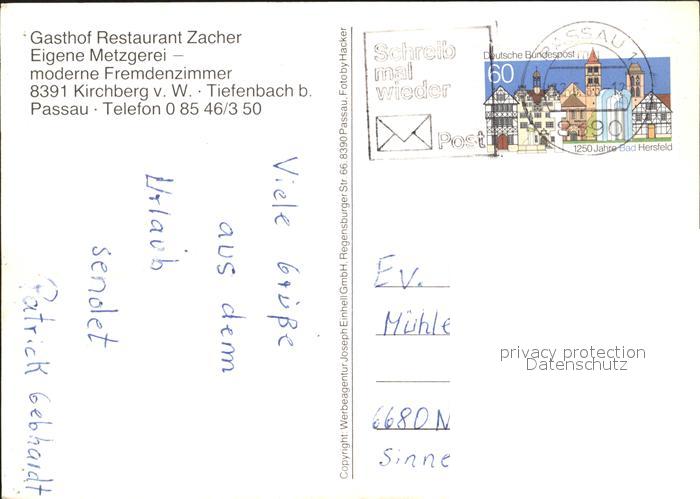 Gasthof Restaurant Zacher
Eigene Metzgerei –
moderne Fremdenzimmer
8391 Kirchberg v. W. · Tiefenbach b.
Passau · Telefon 0 85 46/3 50
Viele Grüße
aus dem
Urlaub
sendet
Patrick Gebhardt
Copyright: Werbeagentur Joseph Einhell GmbH, Regensburger Str. 66, 8390 Passau, Foto by Hacker
Schreib
mal
wieder
Post
PASSAU 1
8390
Deutsche Bundespost
60
1250 Jahre Bad Hersfeld
Ev.
Mühle
6680 N
Sinne
privacy protection
Datenschutz